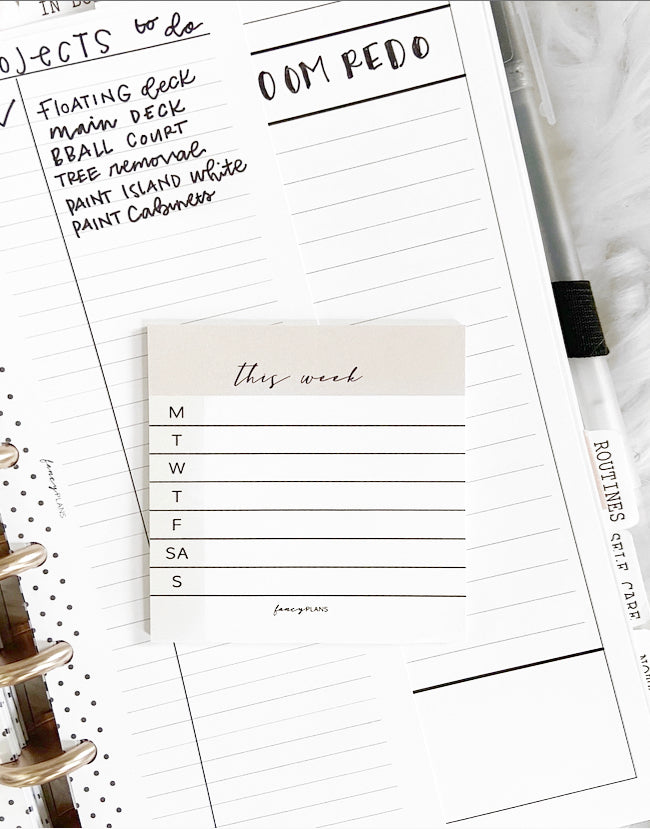 to do
FLOATING deck
main DECK
BBALL COURT
TREE removal
PAINT ISLAND white
PAINT Cabinets
REDO
this week
M
T
W
T
F
SA
S
fancyPLANS
fancyPLANS
ROUTINES
SELF CARE